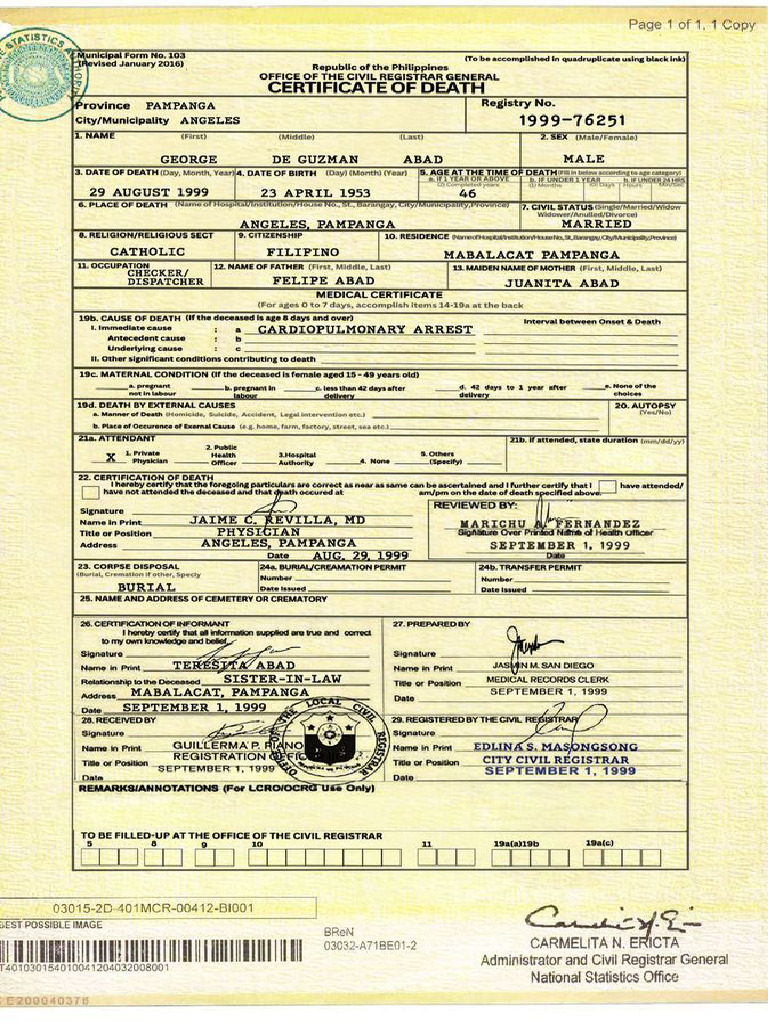 Page 1 of 1, 1 Copy
Municipal Form No. 103
(Revised January 2016)
(To be accomplished in quadruplicate using black ink)
Republic of the Philippines
OFFICE OF THE CIVIL REGISTRAR GENERAL
CERTIFICATE OF DEATH
Province PAMPANGA
City/Municipality ANGELES
Registry No.
1999-76251
1. NAME (First) (Middle) (Last)
GEORGE DE GUZMAN ABAD
2. SEX (Male/Female)
MALE
3. DATE OF DEATH (Day, Month, Year)
29 AUGUST 1999
4. DATE OF BIRTH (Day) (Month) (Year)
23 APRIL 1953
5. AGE AT THE TIME OF DEATH (Fill in below according to age category)
a. IF 1 YEAR OR ABOVE b. IF UNDER 1 YEAR b. IF UNDER 24 HRS
(2) Completed years (1) Months (0) Days Hours Min/Sec
46
6. PLACE OF DEATH (Name of Hospital/Institution/House No., St., Barangay, City/Municipality,Province)
ANGELES, PAMPANGA
7. CIVIL STATUS (Single/Married/Widow
Widower/Anulled/Divorce)
MARRIED
8. RELIGION/RELIGIOUS SECT
CATHOLIC
9. CITIZENSHIP
FILIPINO
10. RESIDENCE (Name of Hospital/Institution/House No., St., Barangay, City/Municipality, Province)
MABALACAT PAMPANGA
11. OCCUPATION
CHECKER/
DISPATCHER
12. NAME OF FATHER (First, Middle, Last)
FELIPE ABAD
13. MAIDEN NAME OF MOTHER (First, Middle, Last)
JUANITA ABAD
MEDICAL CERTIFICATE
(For ages 0 to 7 days, accomplish items 14-19a at the back
19b. CAUSE OF DEATH (If the deceased is age 8 days and over)
Interval between Onset & Death
I. Immediate cause : a CARDIOPULMONARY ARREST
Antecedent cause : b
Underlying cause : c
II. Other significant conditions contributing to death
19c. MATERNAL CONDITION (If the deceased is female aged 15 - 49 years old)
a. pregnant
not in labour
b. pregnant in
labour
c. less than 42 days after
delivery
d. 42 days to 1 year after
delivery
e. None of the
choices
19d. DEATH BY EXTERNAL CAUSES
a. Manner of Death (Homicide, Suicide, Accident, Legal intervention etc.)
b. Place of Occurence of External Cause (e.g. home, farm, factory, street, sea etc.)
20. AUTOPSY
(Yes/No)
21a. ATTENDANT
X 1. Private
Physician
2. Public
Health
Officer
3.Hospital
Authority
4. None
5. Others
(Specify)
21b. if attended, state duration (mm/dd/yy)
22. CERTIFICATION OF DEATH
I hereby certify that the foregoing particulars are correct as near as same can be ascertained and I further certify that I have attended/
have not attended the deceased and that death occured at am/pm on the date of death specified above.
Signature
Name in Print JAIME C. REVILLA, MD
Title or Position PHYSICIAN
Address ANGELES, PAMPANGA
Date AUG. 29, 1999
REVIEWED BY:
MARICHU A. FERNANDEZ
Signature Over Printed Name of Health Officer
SEPTEMBER 1, 1999
Date
23. CORPSE DISPOSAL
(Burial, Cremation if other, Specify
BURIAL
24a. BURIAL/CREAMATION PERMIT
Number
Date Issued
24b. TRANSFER PERMIT
Number
Date Issued
25. NAME AND ADDRESS OF CEMETERY OR CREMATORY
26. CERTIFICATION OF INFORMANT
I hereby certify that all information supplied are true and correct
to my own knowledge and belief.
Signature
Name in Print TERESITA ABAD
Relationship to the Deceased SISTER-IN-LAW
Address MABALACAT, PAMPANGA
Date SEPTEMBER 1, 1999
27. PREPARED BY
Signature
Name in Print JASMIN M. SAN DIEGO
Title or Position MEDICAL RECORDS CLERK
SEPTEMBER 1, 1999
Date
28. RECEIVED BY
Signature
Name in Print GUILLERMA P. PIANO
Title or Position REGISTRATION OFFIC
SEPTEMBER 1, 1999
Date
OFFICE OF THE LOCAL CIVIL REGISTRAR
29. REGISTERED BY THE CIVIL REGISTRAR
Signature
Name in Print EDLINA S. MASONGSONG
Title or Position CITY CIVIL REGISTRAR
Date SEPTEMBER 1, 1999
REMARKS/ANNOTATIONS (For LCRO/OCRG Use Only)
TO BE FILLED-UP AT THE OFFICE OF THE CIVIL REGISTRAR
5 8 9 10 11 19a(a)19b 19a(c)
03015-2D-401MCR-00412-BI001
BEST POSSIBLE IMAGE
T401030154010041204032008001
BReN
03032-A71BE01-2
CARMELITA N. ERICTA
Administrator and Civil Registrar General
National Statistics Office
E200040376